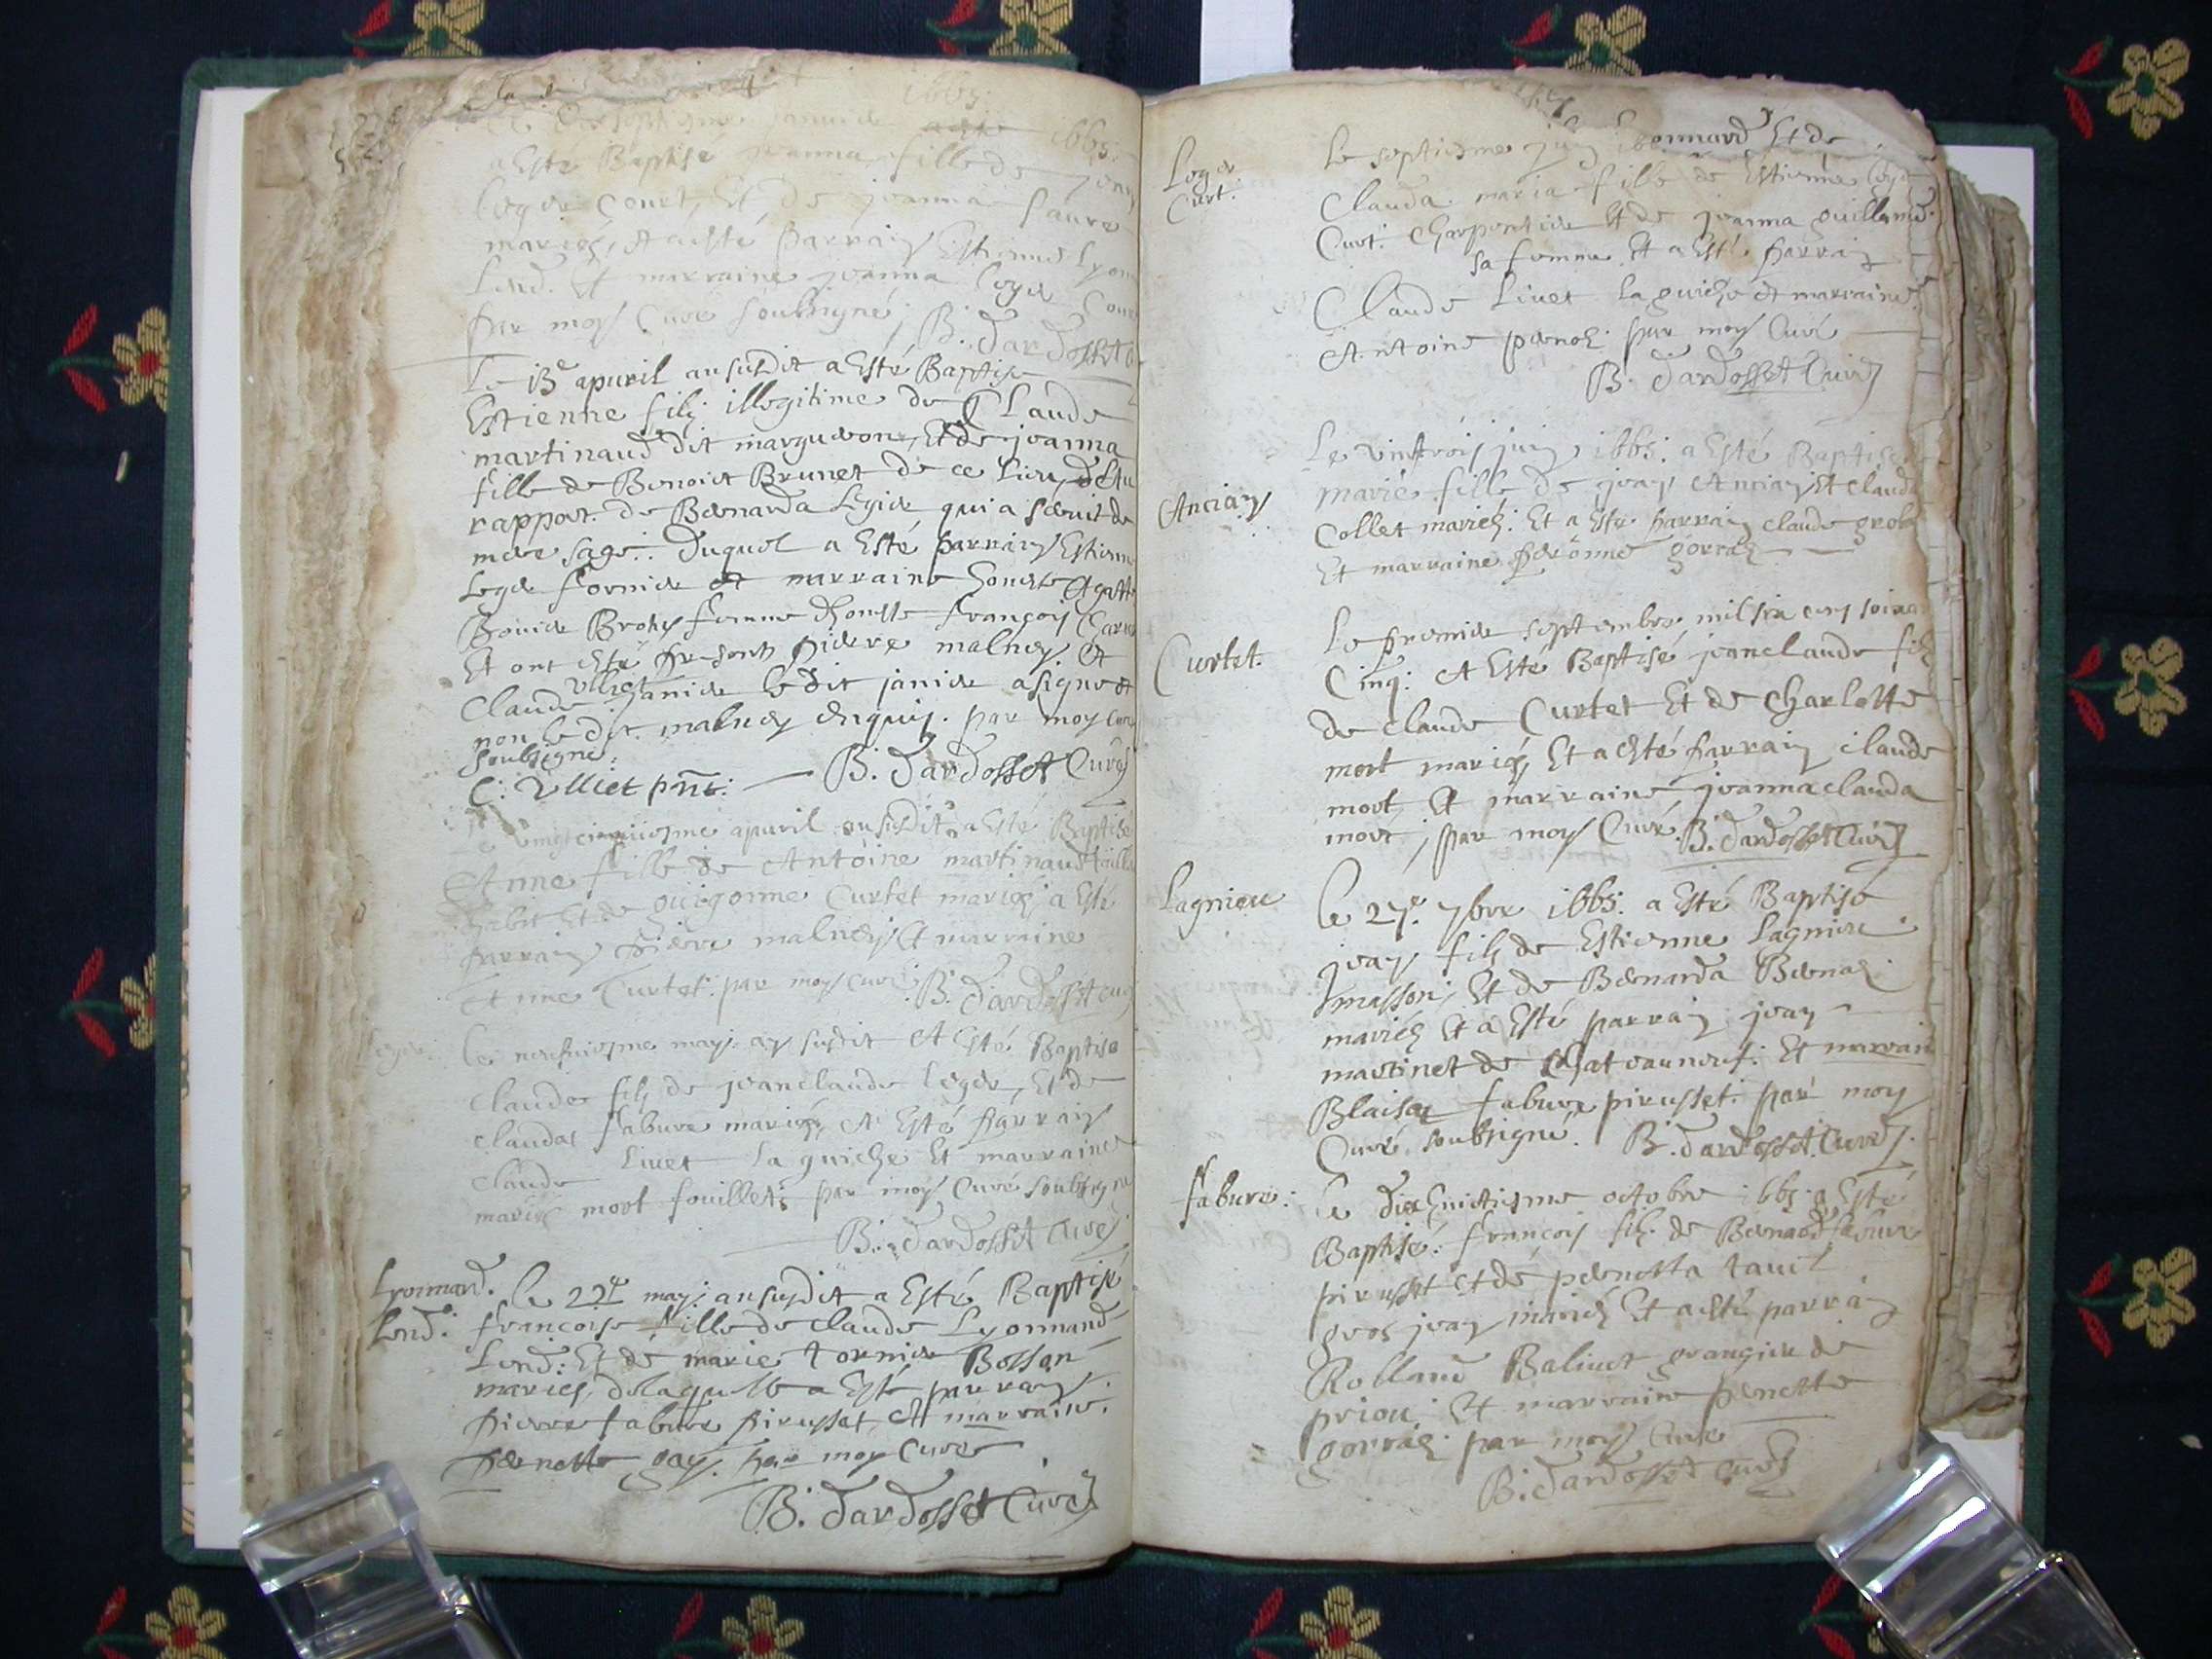 1665
a Esté Baptisé Joanna fille de
leger Court, Et de joanna faure
mariés, et a esté parrain Estienne Lyon
Lend. Et marraine joanna leger Court
par moy Curé soubsigné, B. Dardosset
Le 13e apuril an susdit a Esté Baptise
Estienne filz illegitime de Claude
martinaud dit margueron, Et de joanna
fille de Benoict Brunet de ce lieu,
rapport de Bernarda Legier qui a serui de
mere sage. Duquel a Esté parrain Estienne
Leger fornier et marraine honeste Agatte
femme françois
Et ont esté presents pierre malney et
Vlliet
Claude Janier le dit janier a signe et
non le dit malney enquis. par moy Curé
soubsigné.
C: Vlliet pnt: B. Dardosset Curé
Le vingtcinquiesme apuril an susdit a Esté Baptisé
Anne fille de Antoine martinaud
habit Et de guigonne Curtet mariés, a Esté
parrain pierre malney et marraine
Anne Curtet. par moy Curé. B. Dardosset Curé
leger. le neufuiesme may an susdit A Esté Baptise
Claude filz de jeanclaude leger, Et de
claudaz fabure mariés, A Esté parrain
Claude Liuet la guiche Et marraine
marie mort fouillet; par moy Curé soubsigné
B. Dardosset Curé
Lyonnard. le 22e may an susdit a Esté Baptisé
Lend: francoise fille de claude Lyonnard
Lend: Et de marie tornier Bossan
mariés, delaquelle a Esté parrain
pierre fabure pirusset, Et marraine.
pernette gay. par moy Curé
B. Dardosset Curé
Lyonnard Et de
Leger Le septiesme
Curt. Clauda maria fille de Estienne leger
Curt. Charpentier Et de joanna guillame
sa femme. Et a Esté parrain
Claude Liuet la guiche et marraine
Antoine pernoz par moy Curé
B. Dardosset Curé
Le vintrois juin 1665: a Esté Baptise
Ancian marie fille de jean Ancian Et clauda
Collet mariés: Et a Esté parrain claude
Et marraine peronne gorraz
Le premier septembre mil six cens soixa
Curtet. Cinq: A Esté Baptisé jeanclaude filz
de claude Curtet Et de Charlotte
mort mariés, Et a esté parrain claude
mort, Et marraine joannaclauda
mort, par moy Curé. B. Dardosset Curé
Lagnieu Le 27e 7bre 1665: a Esté Baptisé
jean filz de Estienne Lagnieu
masson, Et de Bernarda Bernaz
mariés Et a Esté parrain jean
martinet de Chateauneuf: Et marrain
Blaisaz fabure pirusset. par moy
Curé soubsigné. B. Dardosset Curé
fabure: Le dixhuictiesme octobre 1665 a Esté
Baptisé: francois filz de Bernard fabure
pirusset et de pernetta tauil
gros jean mariés Et a esté parrain
Rolland Baliuet grangier de
priou. Et marraine pernette
gorraz. par moy Curé
B. Dardosset Curé